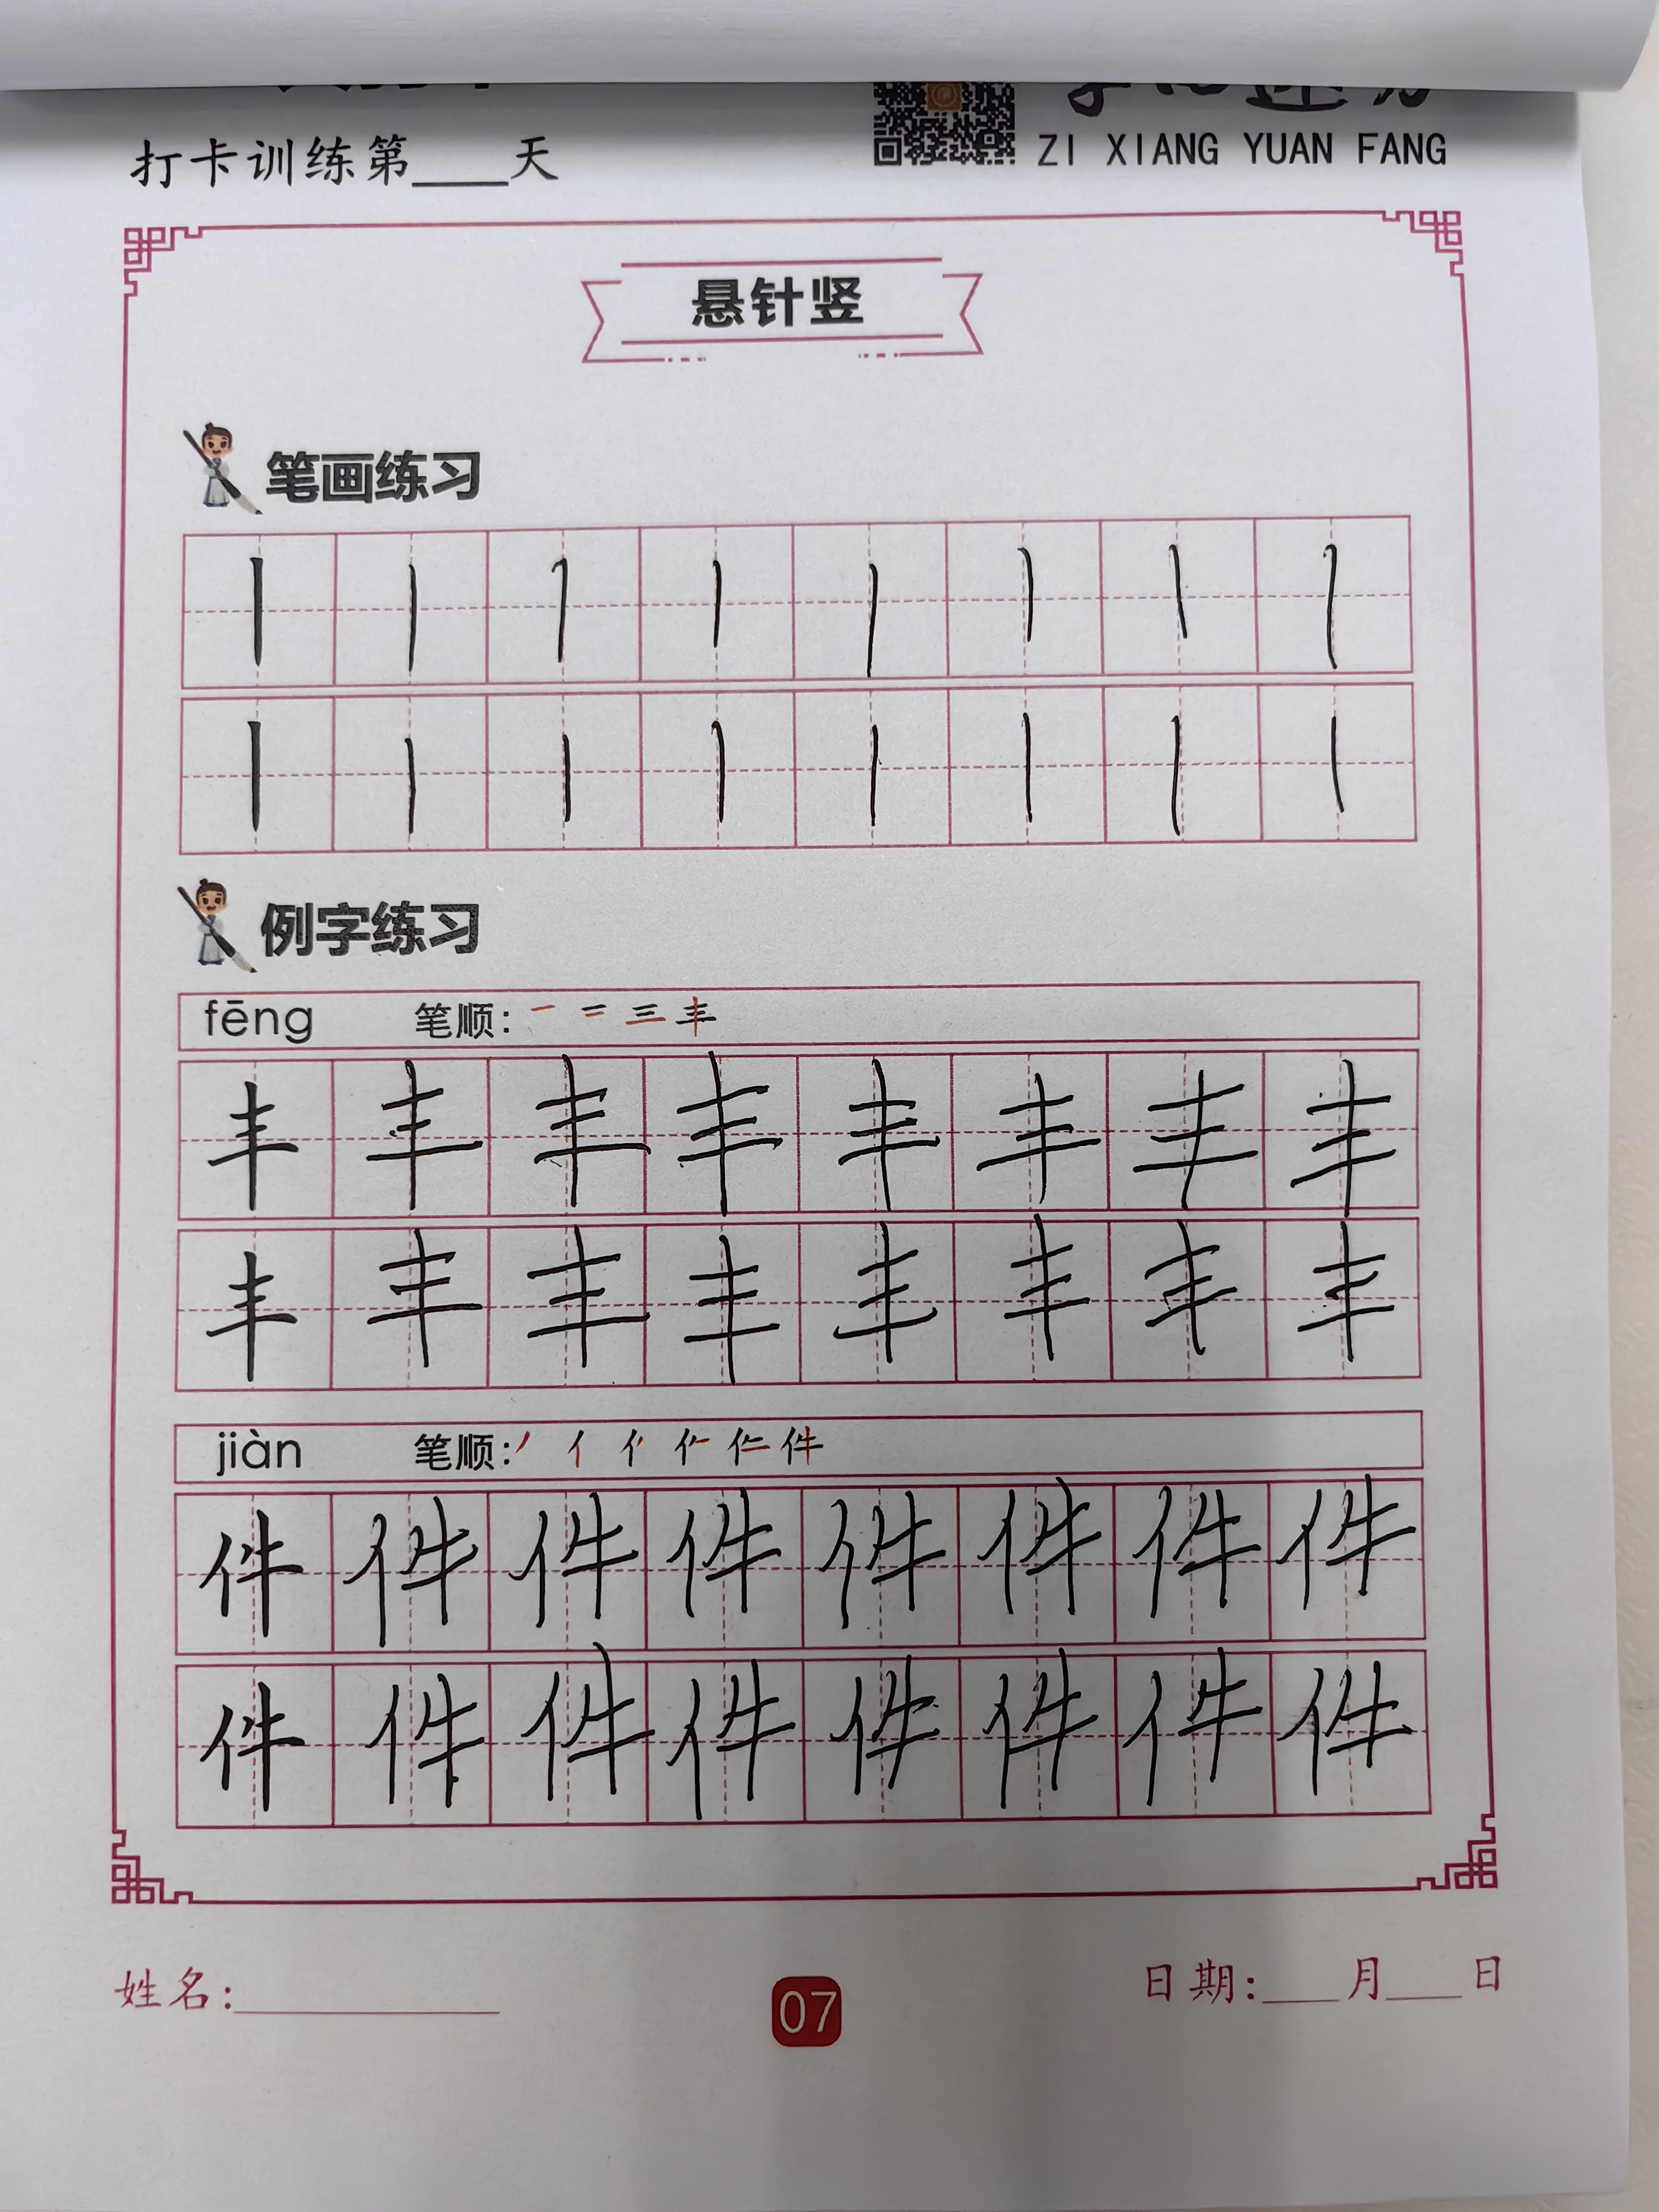 打卡训练第____天
ZI XIANG YUAN FANG
悬针竖
笔画练习
丨 丨 丨 丨 丨 丨 丨 丨
丨 丨 丨 丨 丨 丨 丨 丨
例字练习
fēng 笔顺: 一 二 三 丰
丰 丰 丰 丰 丰 丰 丰 丰
丰 丰 丰 丰 丰 丰 丰 丰
jiàn 笔顺: 丿 亻 件
件 件 件 件 件 件 件 件
件 件 件 件 件 件 件 件
姓名:__________ 07 日期:___月___日